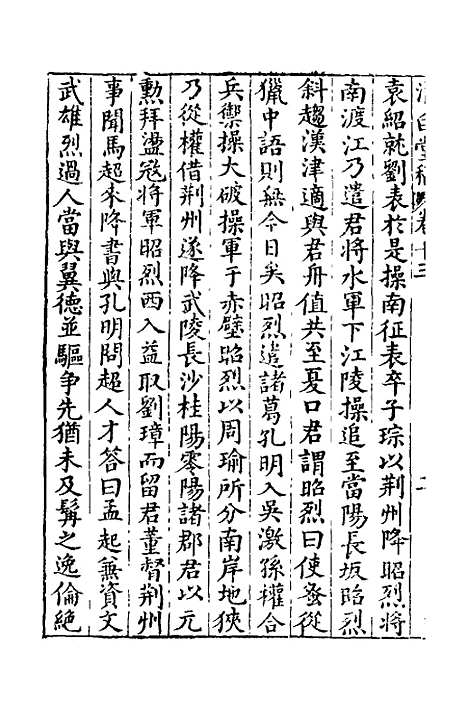 袁紹就劉表於是操南征表卒子琮以荆州降昭烈將
南渡江乃遣君將水軍下江陵操追至當陽長坂昭烈
斜趨漢津適與君舟值共至夏口君謂昭烈曰使蚤從
獵中語則無今日矣昭烈遣諸葛孔明入吳激孫權合
兵禦操大破操軍于赤壁昭烈以周瑜所分南岸地狹
乃從權借荆州遂降武陵長沙桂陽零陽諸郡君以元
勳拜盪寇將軍昭烈西入益取劉璋而留君董督荆州
事聞馬超來降書與孔明問超人才答曰孟起兼資文
武雄烈過人當與翼德並驅争先猶未及髯之逸倫絶